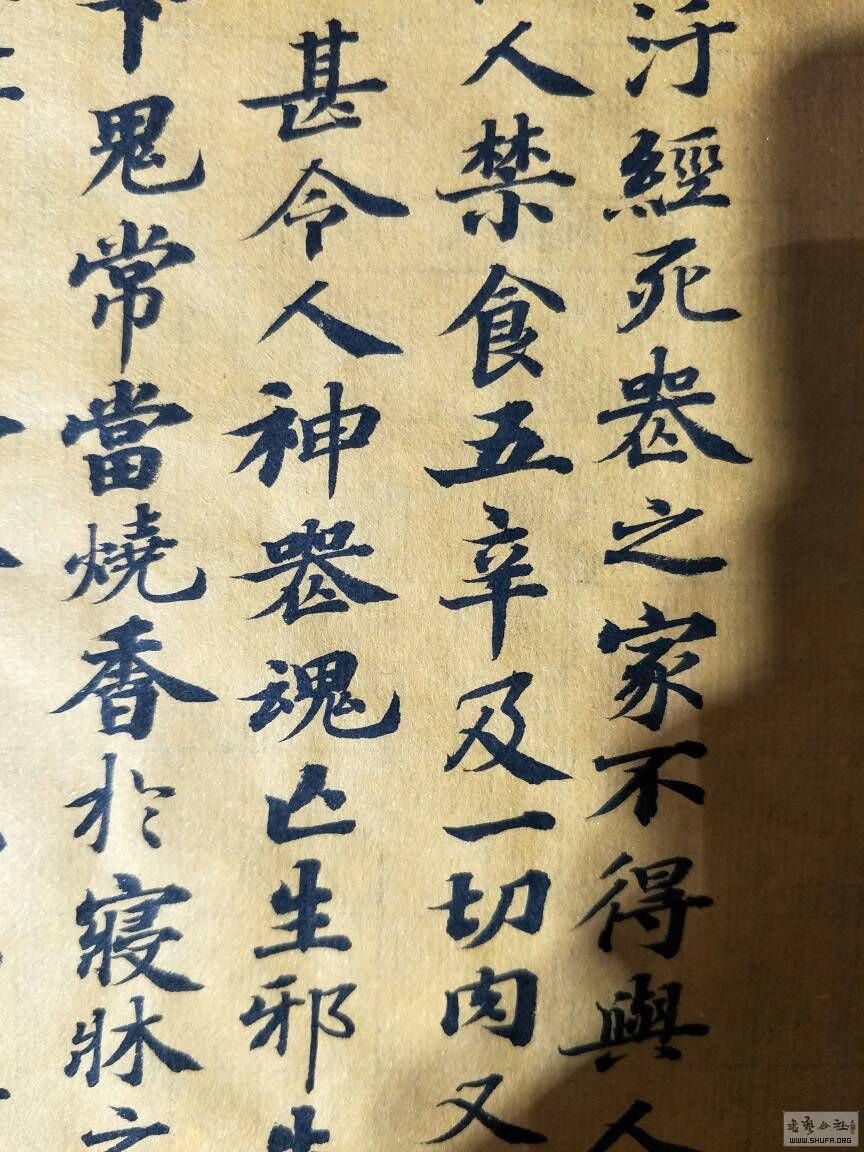 汙經死喪之家不得與人
人禁食五辛及一切肉又
甚令人神喪魂亡生邪失
下鬼常當燒香於寢牀之
書藝公社
WWW.SHUFA.ORG